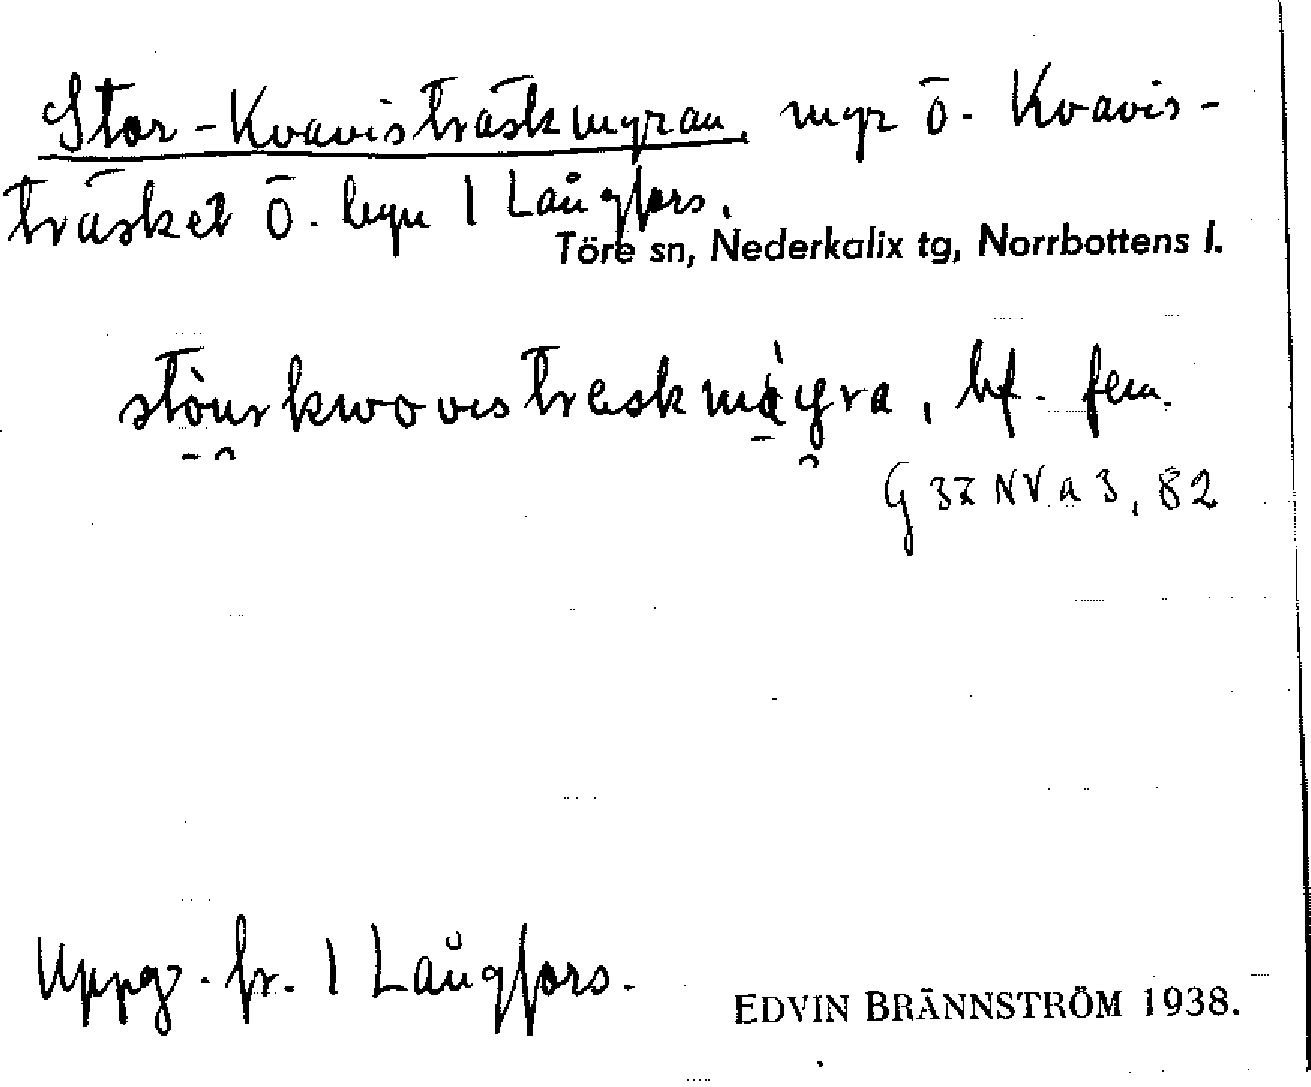 Stor-Kvavisträskmyran, myr ö. Kvavis-
träsket ö. byn 1 Långfors.
Töre sn, Nederkalix tg, Norrbottens l.
stòurkwovistreskmàyra, bf. fem.
G 37 NV a 3, 82
Uppg. fr. 1 Långfors.
EDVIN BRÄNNSTRÖM 1938.